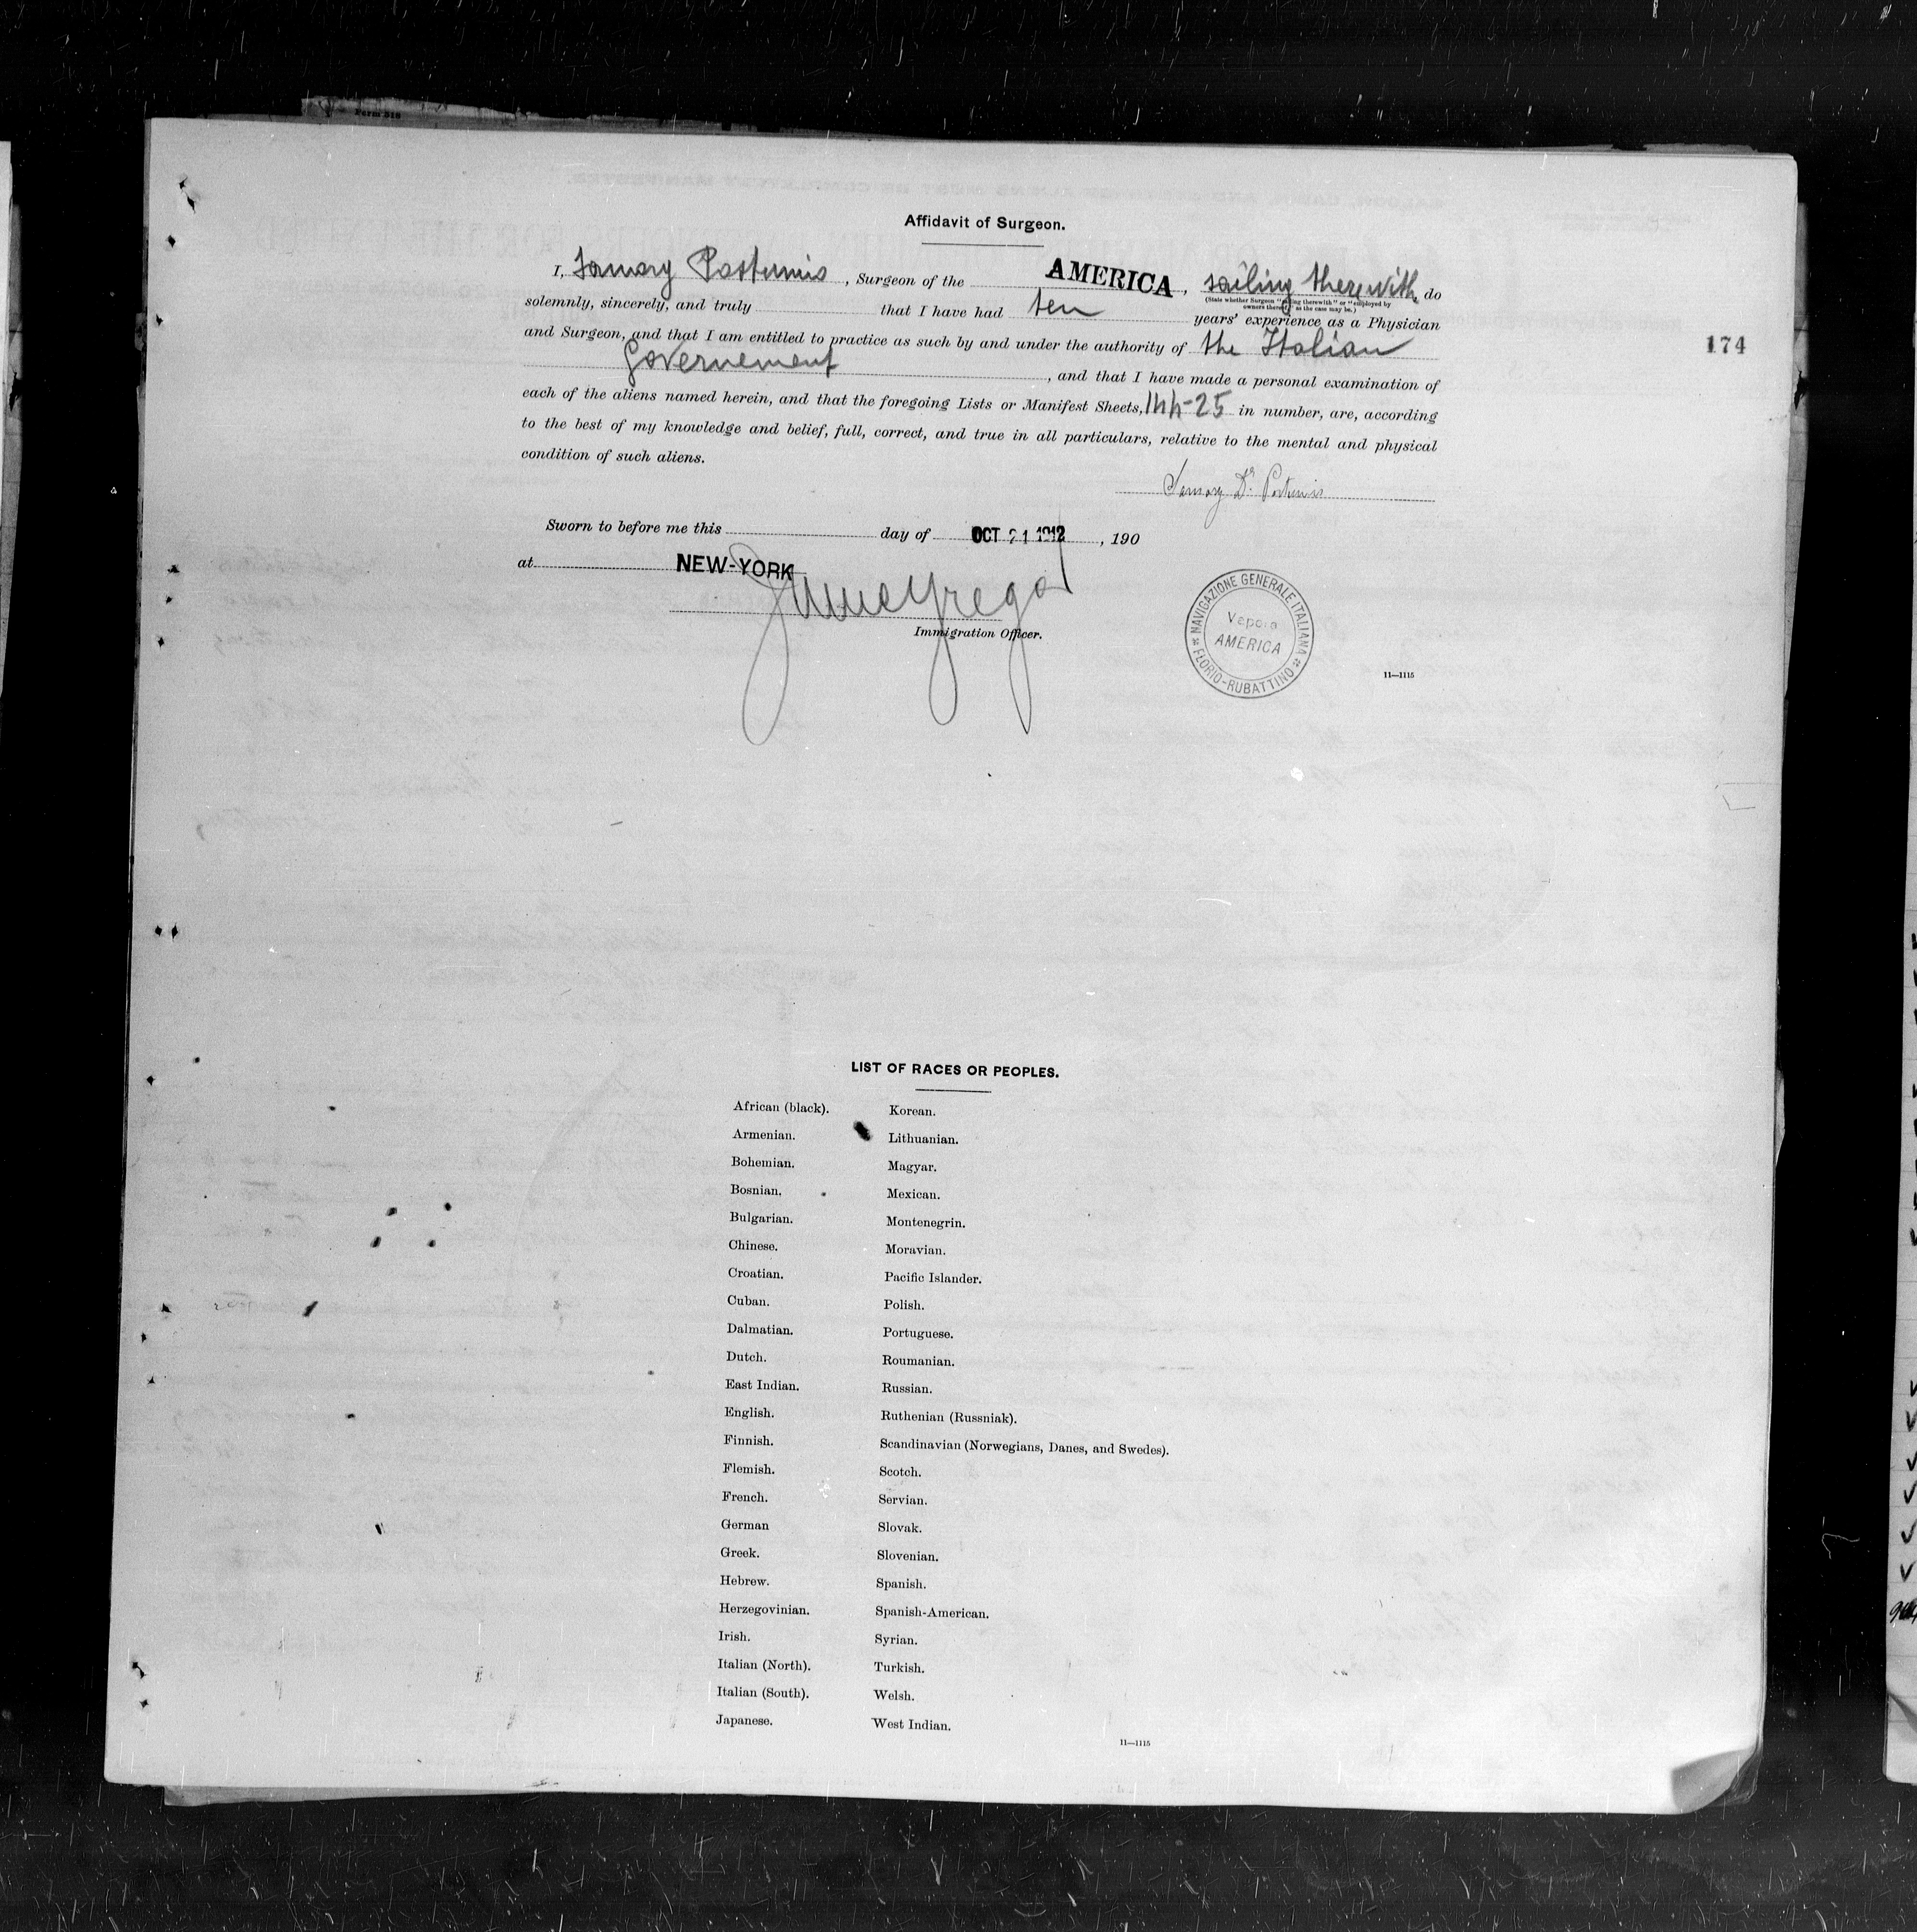 Form 518
Affidavit of Surgeon.
I, Postumio, Surgeon of the AMERICA, sailing therewith, do
(State whether Surgeon "sailing therewith" or "employed by
owners thereof," as the case may be.)
solemnly, sincerely, and truly that I have had ten years' experience as a Physician
and Surgeon, and that I am entitled to practice as such by and under the authority of the Italian
Governement, and that I have made a personal examination of
each of the aliens named herein, and that the foregoing Lists or Manifest Sheets, in number, are, according
to the best of my knowledge and belief, full, correct, and true in all particulars, relative to the mental and physical
condition of such aliens.
174
Sworn to before me this day of OCT 21 1912, 190
at NEW-YORK
Immigration Officer.
NAVIGAZIONE GENERALE ITALIANA
Vapore
AMERICA
FLORIO-RUBATTINO
11—1115
LIST OF RACES OR PEOPLES.
African (black). Korean.
Armenian. Lithuanian.
Bohemian. Magyar.
Bosnian. Mexican.
Bulgarian. Montenegrin.
Chinese. Moravian.
Croatian. Pacific Islander.
Cuban. Polish.
Dalmatian. Portuguese.
Dutch. Roumanian.
East Indian. Russian.
English. Ruthenian (Russniak).
Finnish. Scandinavian (Norwegians, Danes, and Swedes).
Flemish. Scotch.
French. Servian.
German Slovak.
Greek. Slovenian.
Hebrew. Spanish.
Herzegovinian. Spanish-American.
Irish. Syrian.
Italian (North). Turkish.
Italian (South). Welsh.
Japanese. West Indian.
11—1115